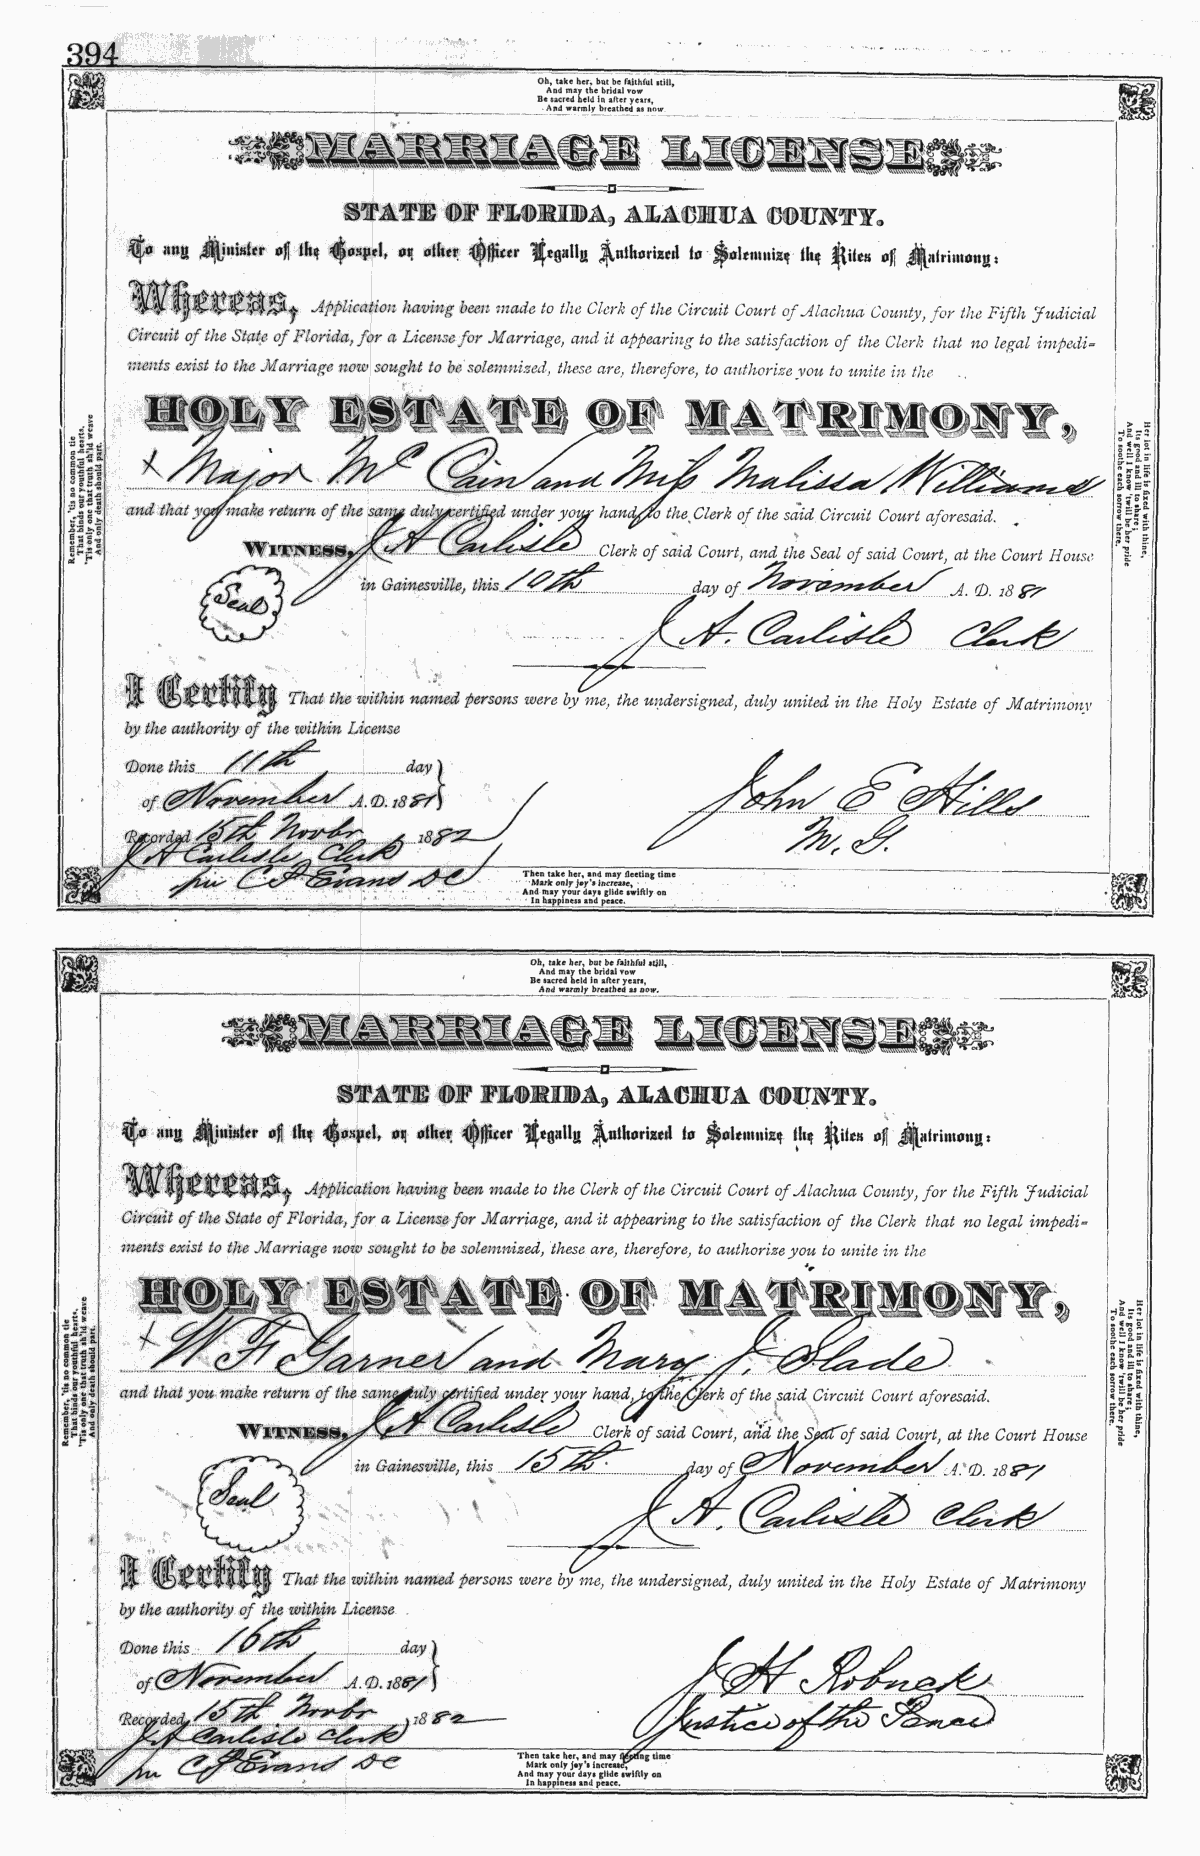 394
Oh, take her, but be faithful still,
And may the bridal vow
Be sacred held in after years,
And warmly breathed as now.
MARRIAGE LICENSE
STATE OF FLORIDA, ALACHUA COUNTY.
To any Minister of the Gospel, or other Officer Legally Authorized to Solemnize the Rites of Matrimony:
Whereas, Application having been made to the Clerk of the Circuit Court of Alachua County, for the Fifth Judicial
Circuit of the State of Florida, for a License for Marriage, and it appearing to the satisfaction of the Clerk that no legal impedi=
ments exist to the Marriage now sought to be solemnized, these are, therefore, to authorize you to unite in the
HOLY ESTATE OF MATRIMONY,
x Major Mc Cain and Miss Malissa Williams
and that you make return of the same duly certified under your hand, to the Clerk of the said Circuit Court aforesaid.
WITNESS, J A Carlisle Clerk of said Court, and the Seal of said Court, at the Court House
in Gainesville, this 10th day of November A. D. 1881
Seal
J A. Carlisle Clerk
I Certify That the within named persons were by me, the undersigned, duly united in the Holy Estate of Matrimony
by the authority of the within License
Done this 11th day
of November A.D. 1881
John E Hills
M. G.
Recorded 15th Novbr 1882
J A Carlisle Clerk
per C P Evans DC
Remember, 'tis no common tie
That binds our youthful hearts,
'Tis only one that truth sh'ld weave
And only death should part.
Her lot in life is fixed with thine,
Its good and ill to share;
And well I know 'twill be her pride
To soothe each sorrow there.
Then take her, and may fleeting time
Mark only joy's increase,
And may your days glide swiftly on
In happiness and peace.
Oh, take her, but be faithful still,
And may the bridal vow
Be sacred held in after years,
And warmly breathed as now.
MARRIAGE LICENSE
STATE OF FLORIDA, ALACHUA COUNTY.
To any Minister of the Gospel, or other Officer Legally Authorized to Solemnize the Rites of Matrimony:
Whereas, Application having been made to the Clerk of the Circuit Court of Alachua County, for the Fifth Judicial
Circuit of the State of Florida, for a License for Marriage, and it appearing to the satisfaction of the Clerk that no legal impedi=
ments exist to the Marriage now sought to be solemnized, these are, therefore, to authorize you to unite in the
HOLY ESTATE OF MATRIMONY,
x W F Garner and Mary J. Slade
and that you make return of the same duly certified under your hand, to the Clerk of the said Circuit Court aforesaid.
WITNESS, J A Carlisle Clerk of said Court, and the Seal of said Court, at the Court House
in Gainesville, this 15th. day of November A. D. 1881
Seal
J A. Carlisle Clerk
I Certify That the within named persons were by me, the undersigned, duly united in the Holy Estate of Matrimony
by the authority of the within License
Done this 16th day
of November A.D. 1881
J H Robuck
Justice of the Peace
Recorded 15th Novbr 1882
J A Carlisle Clerk
per C P Evans DC
Remember, 'tis no common tie
That binds our youthful hearts,
'Tis only one that truth sh'ld weave
And only death should part.
Her lot in life is fixed with thine,
Its good and ill to share;
And well I know 'twill be her pride
To soothe each sorrow there.
Then take her, and may fleeting time
Mark only joy's increase,
And may your days glide swiftly on
In happiness and peace.